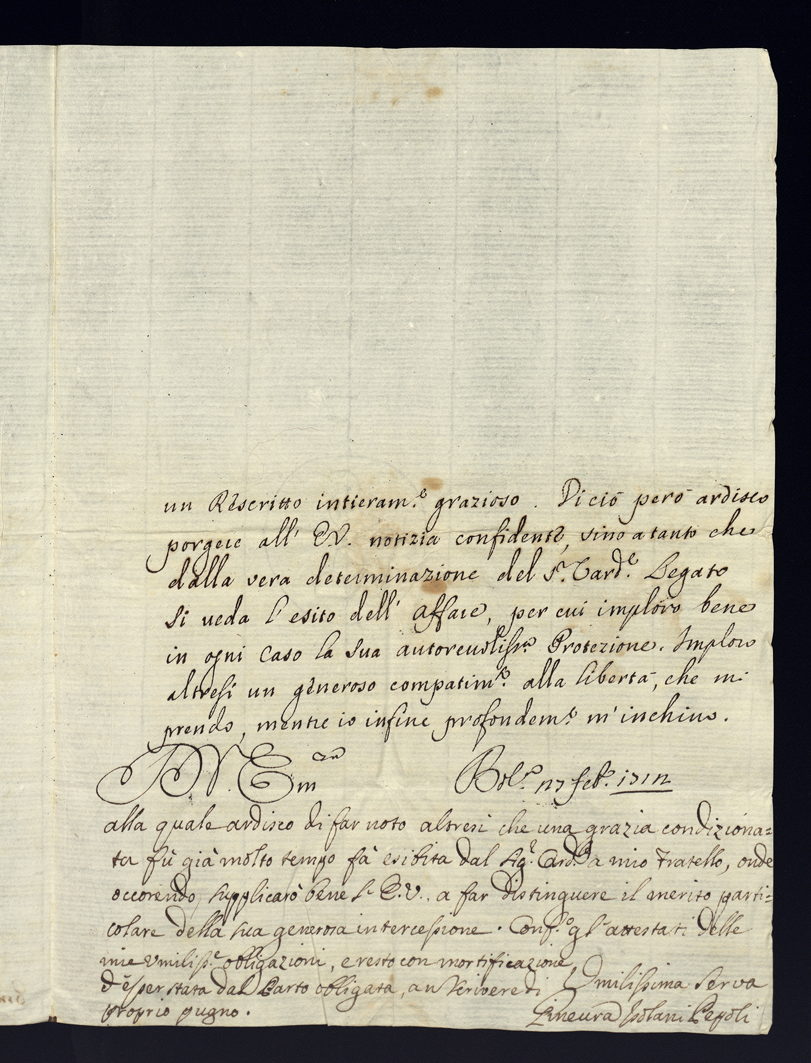 un Rescritto intieram.e grazioso. Di ciò però ardisco
porgere all' E.V. notizia confidente, sino a tanto che
dalla vera determinazione del S.r Card.e Legato
si veda l'esito dell' affare, per cui imploro bene
in ogni caso la sua autoreuoliss.ma Protezione. Imploro
altresi un generoso compatim.to alla libertà, che mi
prendo, mentre io infine profondem.e m'inchino.
D. V. Em.za
Bol.a 27 feb.o 1712
alla quale ardisco di far noto altresi che una grazia condiziona=
ta fù già molto tempo fà esibita dal Sig.r Card.le a mio fratello, onde
occorendo, supplicarò bene l' E.V. a far distinguere il merito parti=
colare della sua generosa intercessione. Conf.o gl'attestati delle
mie vmiliss.e obligazioni, e resto con mortificazione,
d'esser stata dal Parto obligata, a n scrivere di
proprio pugno.
Vmilissima Serva
Gineura Isolani Pepoli